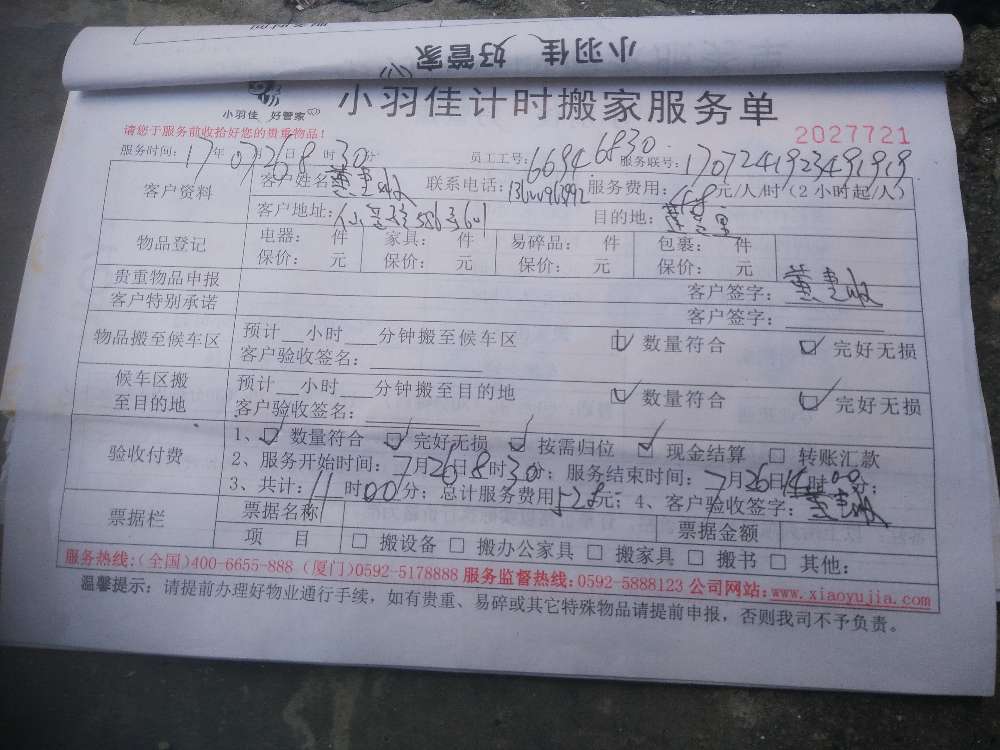 小羽佳 好管家
小羽佳 好管家
小羽佳计时搬家服务单
请您于服务前收拾好您的贵重物品！
2027721
服务时间：17年07月26日8时30分 员工工号：6694 6830 服务联号：1707241923491919
客户资料 客户姓名 联系电话： 服务费用：48元/人/时（2小时起/人）
客户地址： 目的地：
物品登记 电器： 件 家具： 件 易碎品： 件 包裹： 件
保价： 元 保价： 元 保价： 元 保价： 元
贵重物品申报 客户签字：
客户特别承诺 客户签字：
物品搬至候车区 预计__小时___分钟搬至候车区 数量符合 完好无损
客户验收签名：
候车区搬至目的地 预计__小时___分钟搬至目的地 数量符合 完好无损
客户验收签名：
验收付费 1、☑数量符合 ☑完好无损 ☑按需归位 ☑现金结算 □转账汇款
2、服务开始时间：7月26日8时30分；服务结束时间：7月26日14时00分；
3、共计：11时00分；总计服务费用528元；4、客户验收签字：
票据栏 票据名称 票据金额
项 目 □搬设备 □搬办公家具 □搬家具 □搬书 □其他：
服务热线：（全国）400-6655-888（厦门）0592-5178888 服务监督热线：0592-5888123 公司网站：www.xiaoyujia.com
温馨提示：请提前办理好物业通行手续，如有贵重、易碎或其它特殊物品请提前申报，否则我司不予负责。